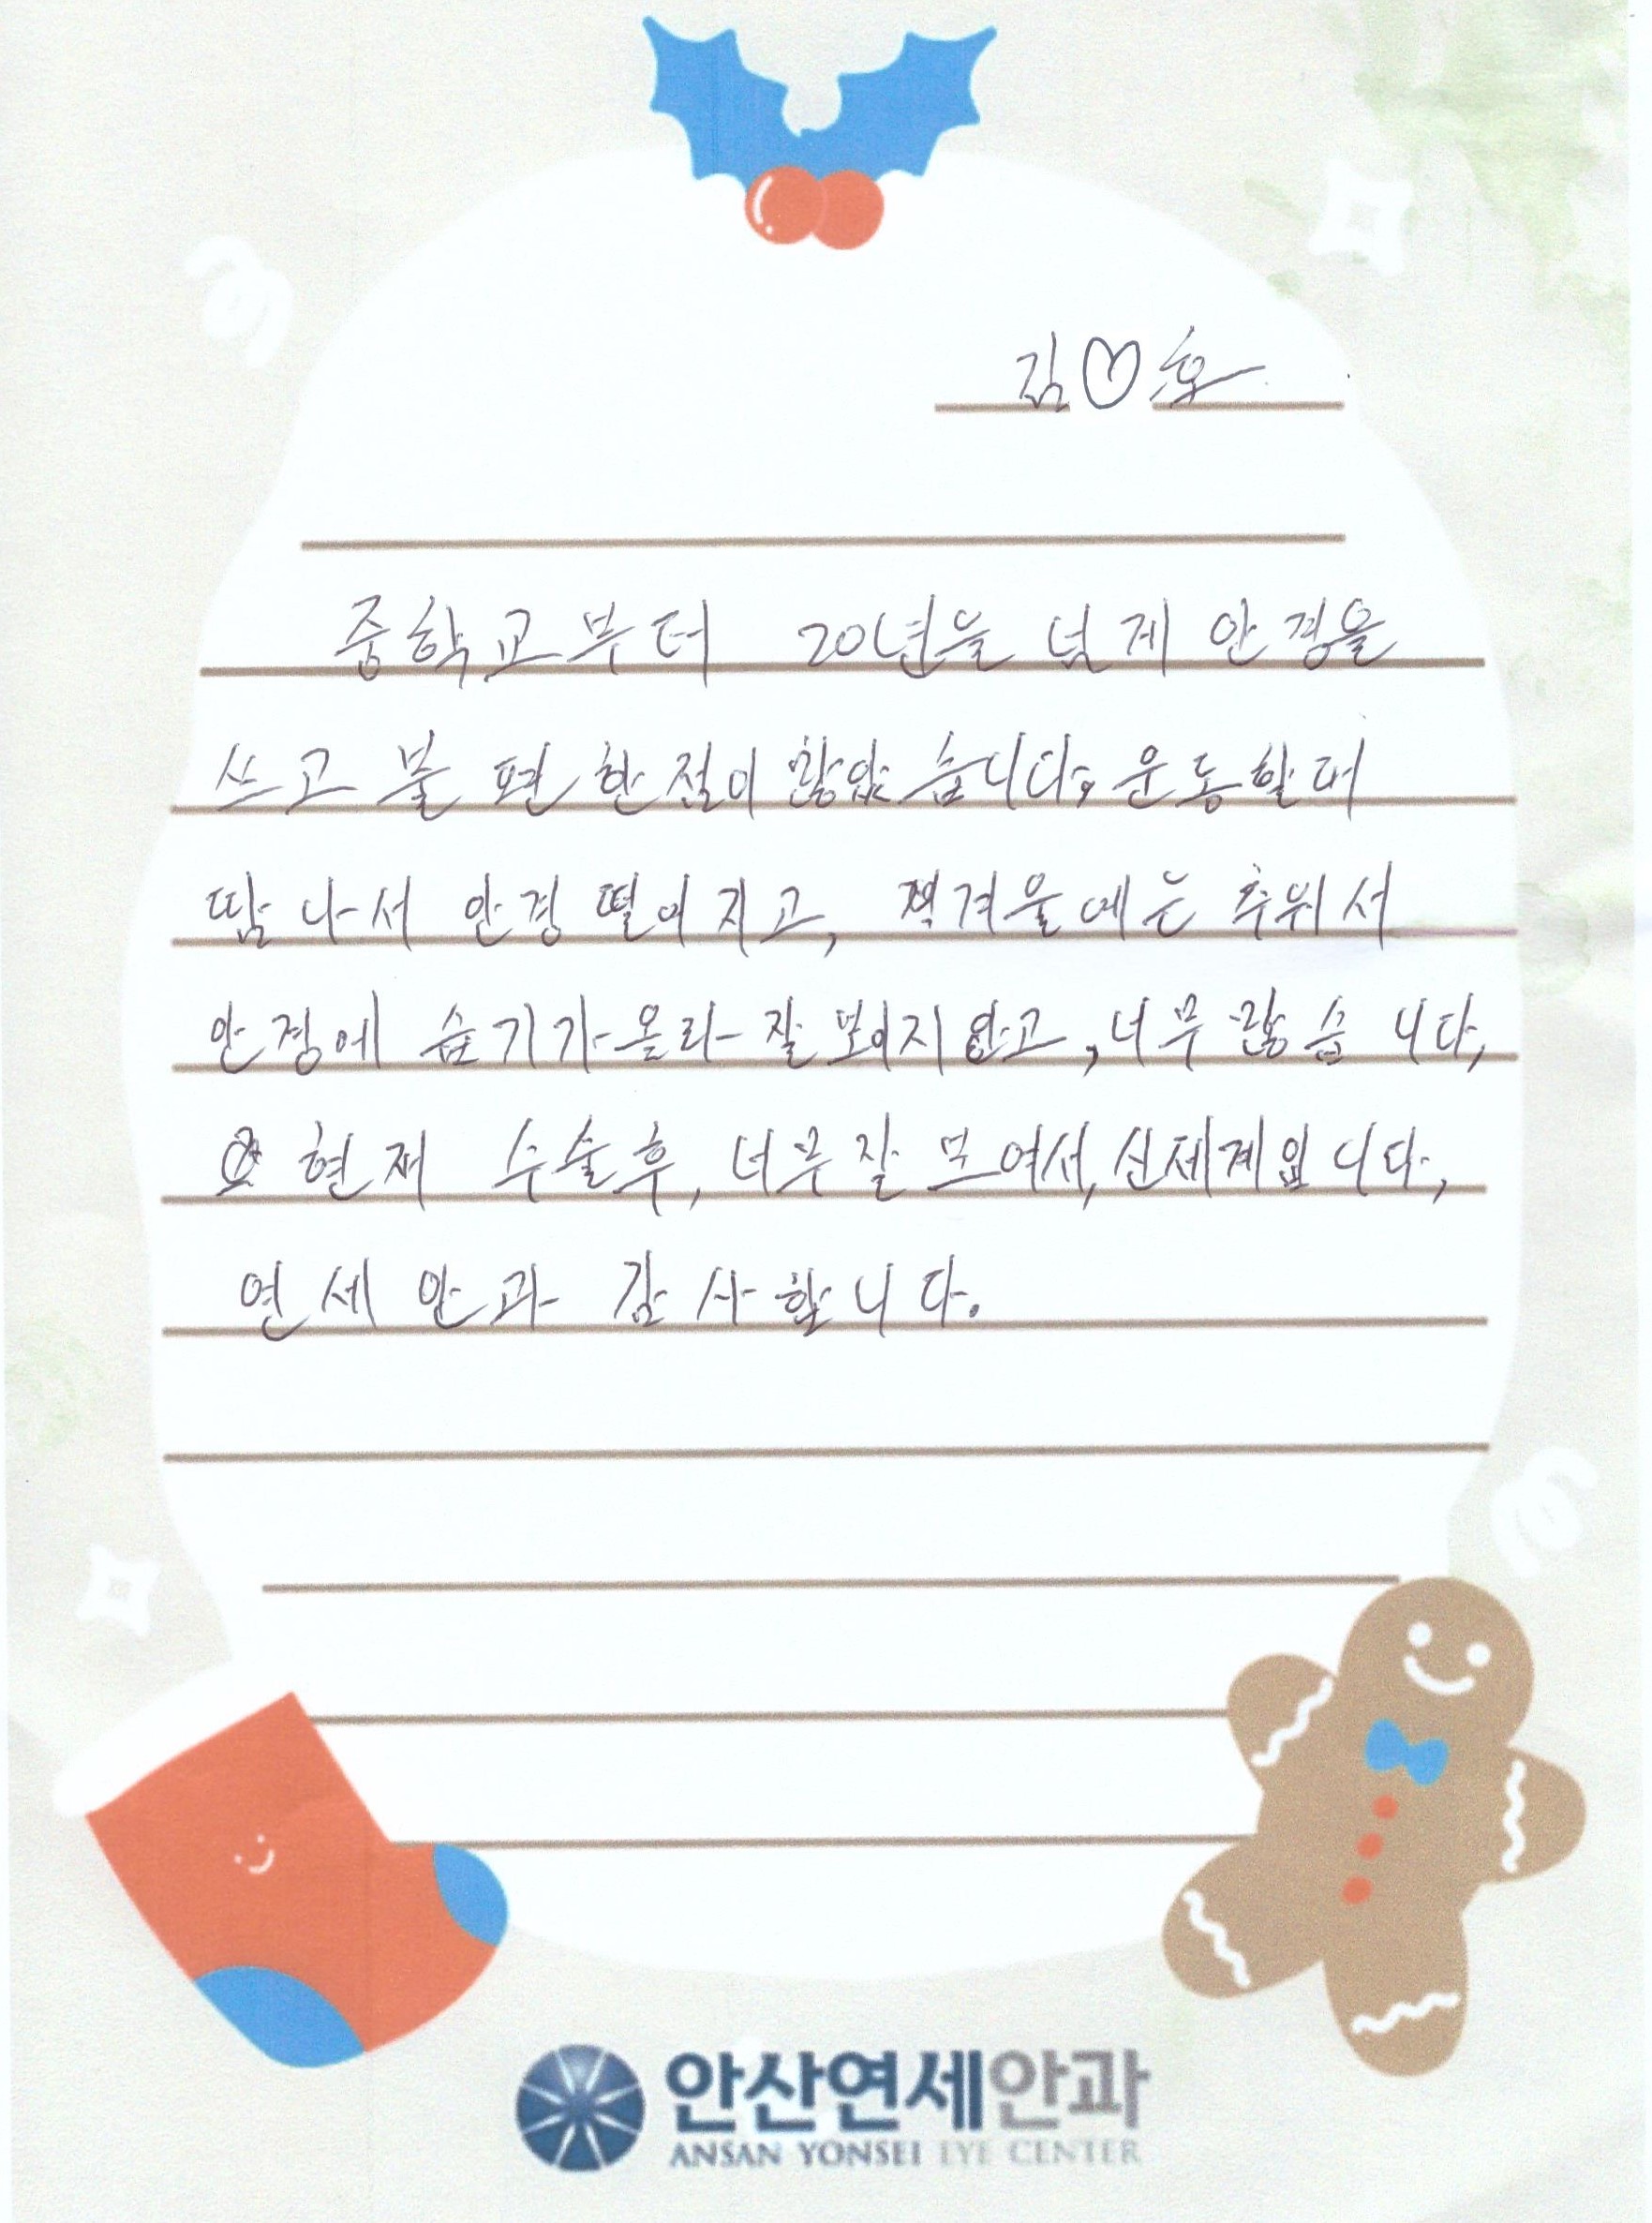 김♡호
중학교부터 20년을 넘게 안경을
쓰고 불편한점이 많았습니다, 운동할대
땀나서 안경 떨어지고, 겨울에는 추워서
안경에 습기가 올라 잘 보이지 않고, 너무 많습니다,
현재 수술후, 너무 잘 보여서, 신세계입니다,
연세안과 감사합니다.
안산연세안과
ANSAN YONSEI EYE CENTER